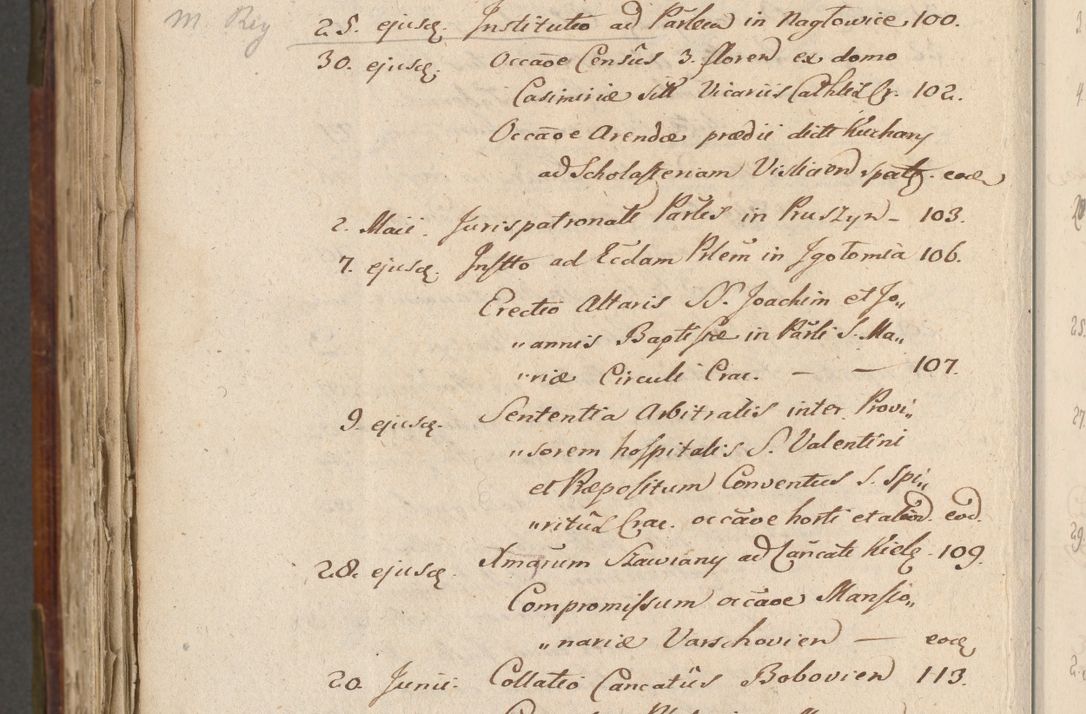 M. Rey
25. ejusq. Institutio ad Parlem in Nagłowice 100.
30. ejusq. Occaoe Census 3. floren ex domo
Casimiriæ sitt Vicariis Cathlis Cr. 102.
Occaoe Arendæ prædii dicti Kuchary
ad Scholasteriam Vislicen spectt. eode
2. Maii. Jurispatronats Parlis in Pruszyn – 103.
7. ejusq. Instto ad Ecclam Prlem in Jgołomia 106.
Erectio Altaris SS. Joachim et Jo„
„annis Baptistæ in Parli S. Ma„
„riæ Circuli Crac. — — 107.
9. ejusq. Sententia Arbitralis inter Provi„
„sorem hospitalis S. Valentini
et Præpositum Conventus S. Spi„
„ritus Crac. occaoe horti et aliod. eod.
28. ejusq. Szawiany ad Cancats Kielc. 109.
Compromissum occaoe Mansio„
„nariæ Varschovien — eodq
20. Junii. Collatio Cancatus Bobovien 113.